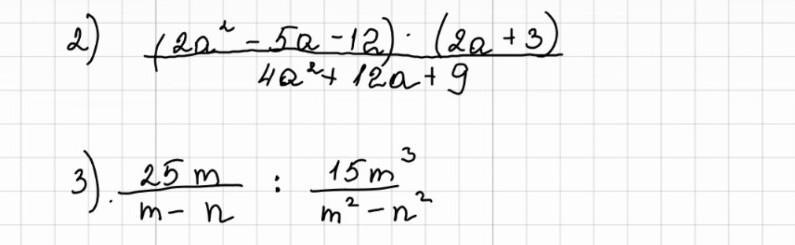 2) (2a² - 5a - 12) · (2a + 3)
4a² + 12a + 9
3). 25 m / m - n : 15m³ / m² - n²